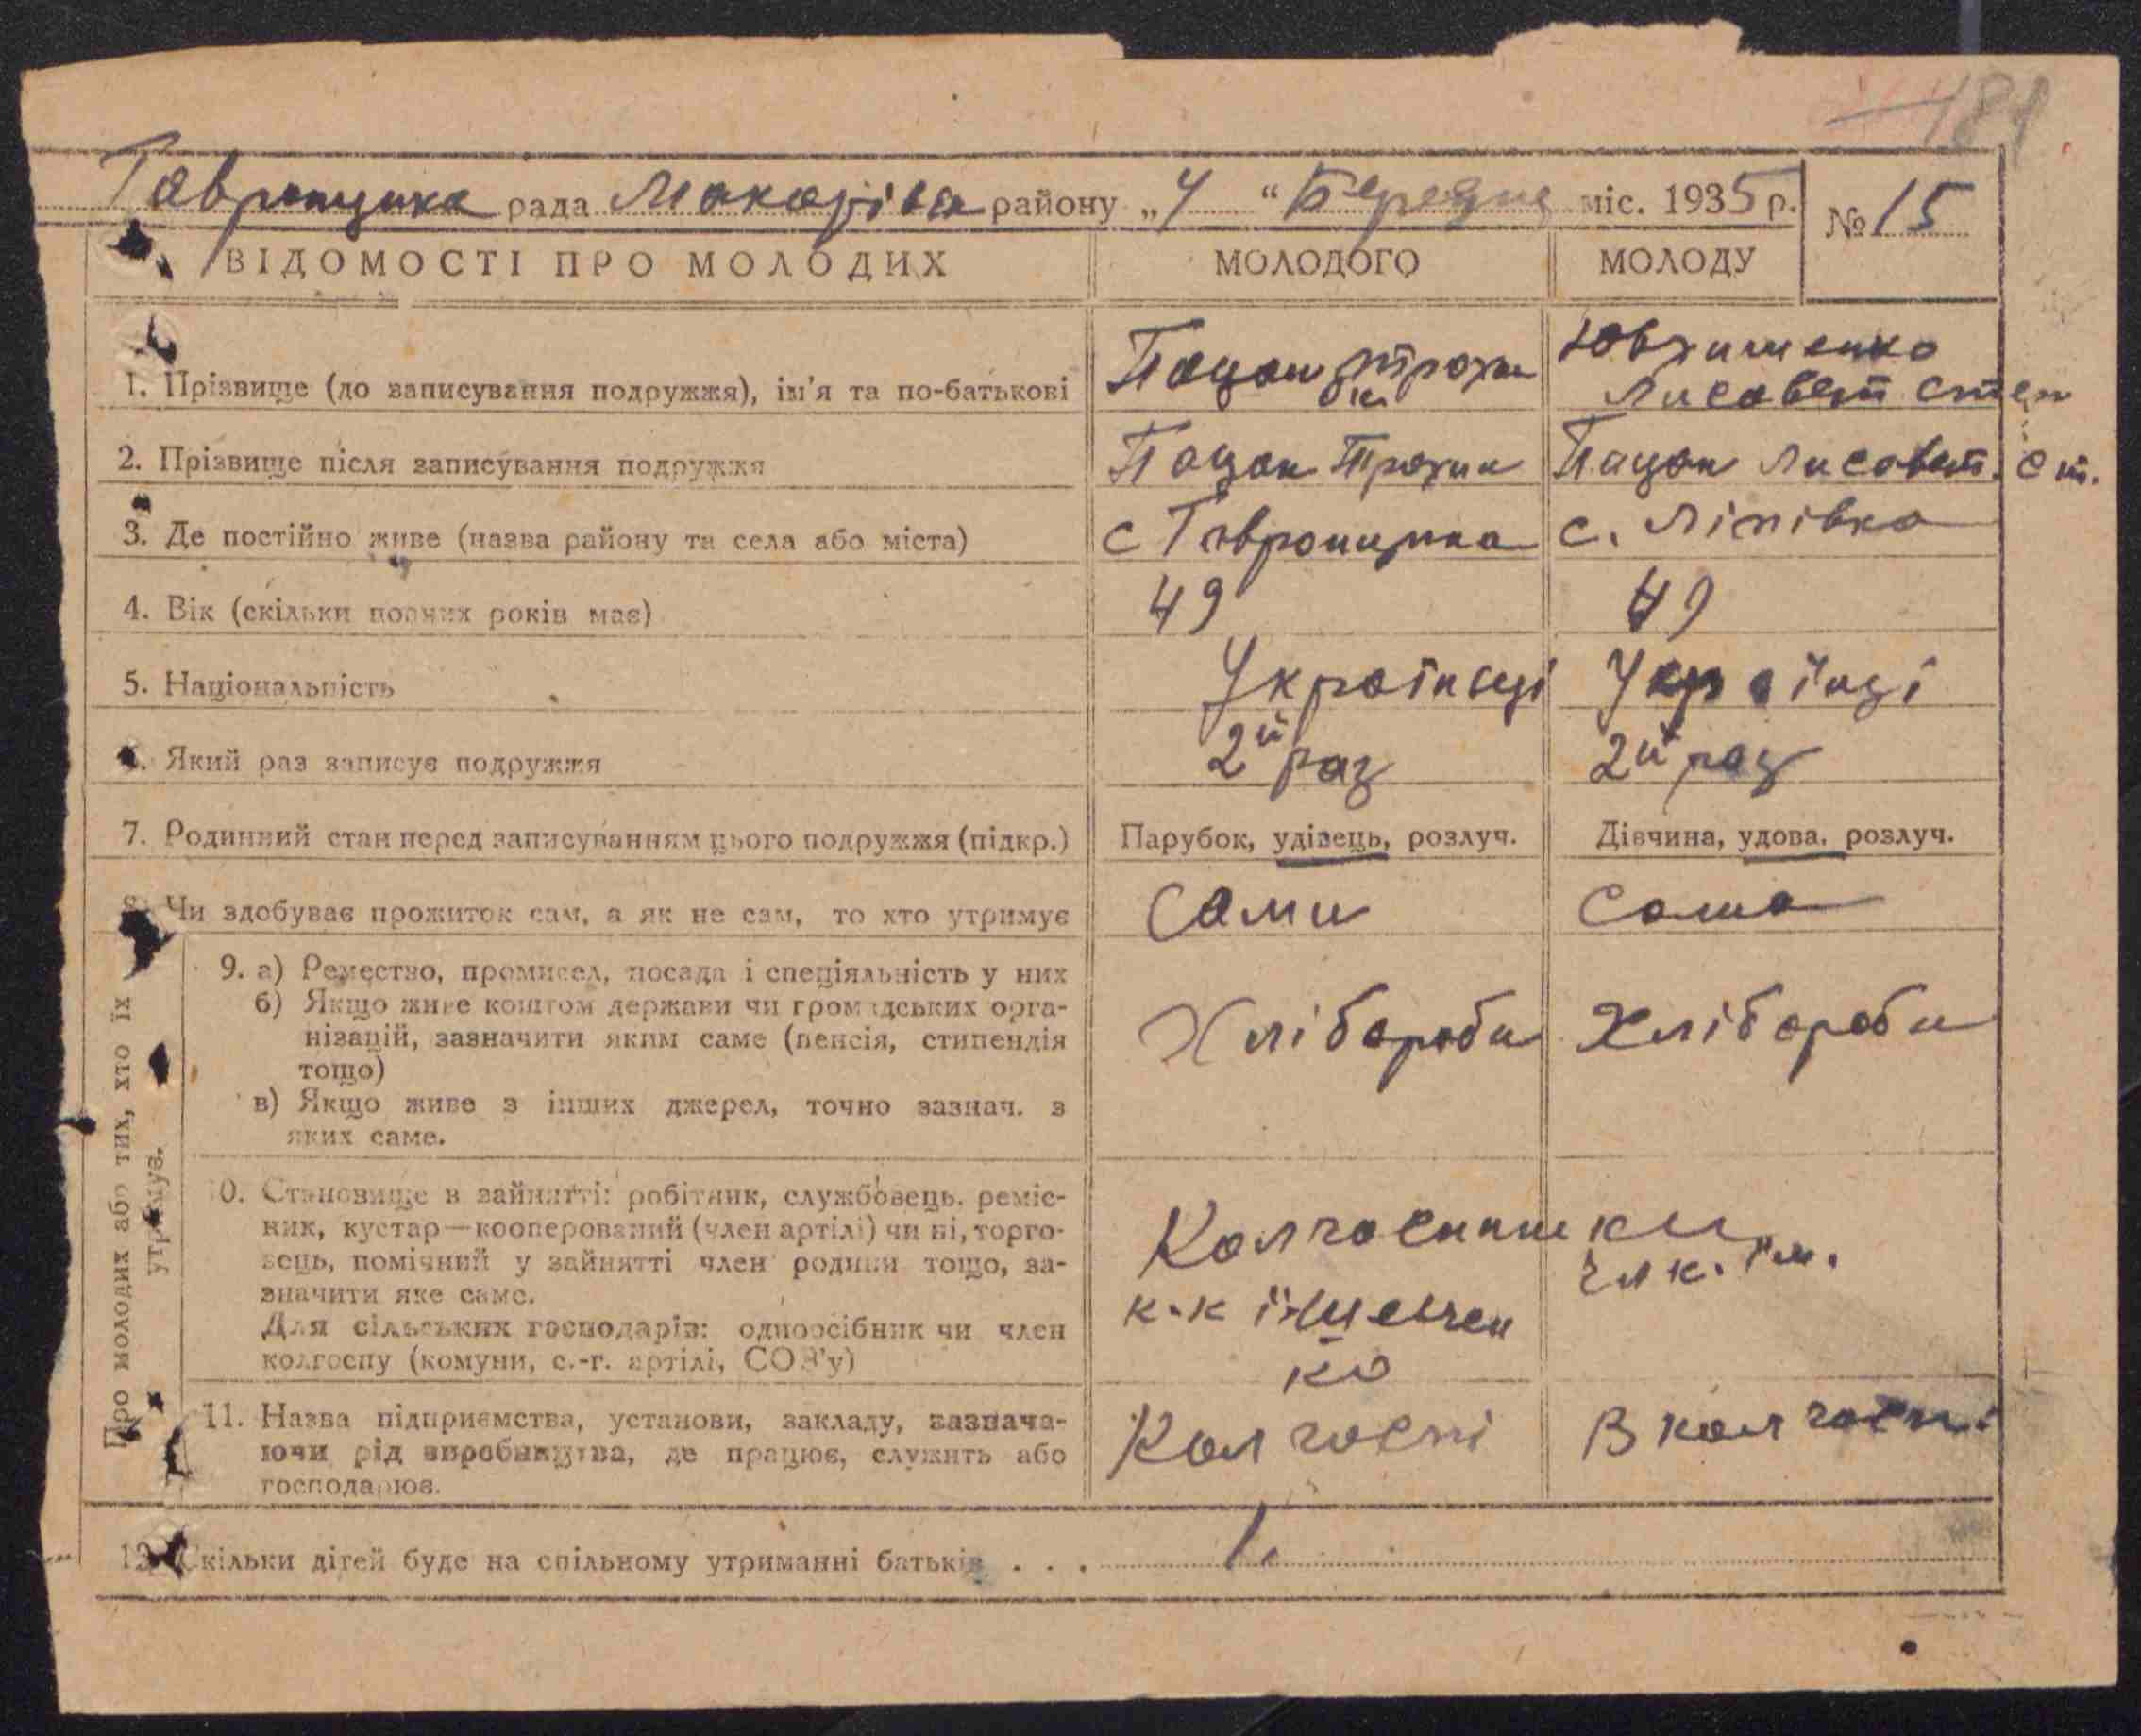 181
Гавронщина рада Макарівск району „4“ Березня міс. 1935 р. № 15
ВІДОМОСТІ ПРО МОЛОДИХ МОЛОДОГО МОЛОДУ
1. Прізвище (до записування подружжя), ім'я та по-батькові Пацан Трохим Ювхименко Лисавет Степ
2. Прізвище після записування подружжя Пацан Трохим Пацан Лисавет. Ст.
3. Де постійно живе (назва району та села або міста) с Гавронщина с. Ліпівка
4. Вік (скільки повних років має) 49 49
5. Національність Українці Українці
6. Який раз записує подружжя 2й раз 2й раз
7. Родинний стан перед записуванням цього подружжя (підкр.) Парубок, удівець, розлуч. Дівчина, удова, розлуч.
8. Чи здобуває прожиток сам, а як не сам, то хто утримує Сами Сама
Про молодих або тих, хто їх утримує.
9. а) Ремество, промисел, посада і спеціяльність у них
б) Якщо живе коштом держави чи громадських орга-
нізацій, зазначити яким саме (пенсія, стипендія Хлібороби Хлібороби
тощо)
в) Якщо живе з інших джерел, точно зазнач. з
яких саме.
10. Становище в зайнятті: робітник, службовець, реміс-
ник, кустар—кооперований (член артілі) чи ні, торго- Колгоспники
вець, помічний у зайнятті член родини тощо, за- чл к. ім.
значити яке саме. к-к ім Шевчен
Для сільських господарів: одноосібник чи член
колгоспу (комуни, с.-г. артілі, СОЗ'у) ко
11. Назва підприємства, установи, закладу, зазнача- Колгоспі В колгоспі
ючи рід виробництва, де працює, служить або
господарює.
12. Скільки дітей буде на спільному утриманні батьків . . . 1.